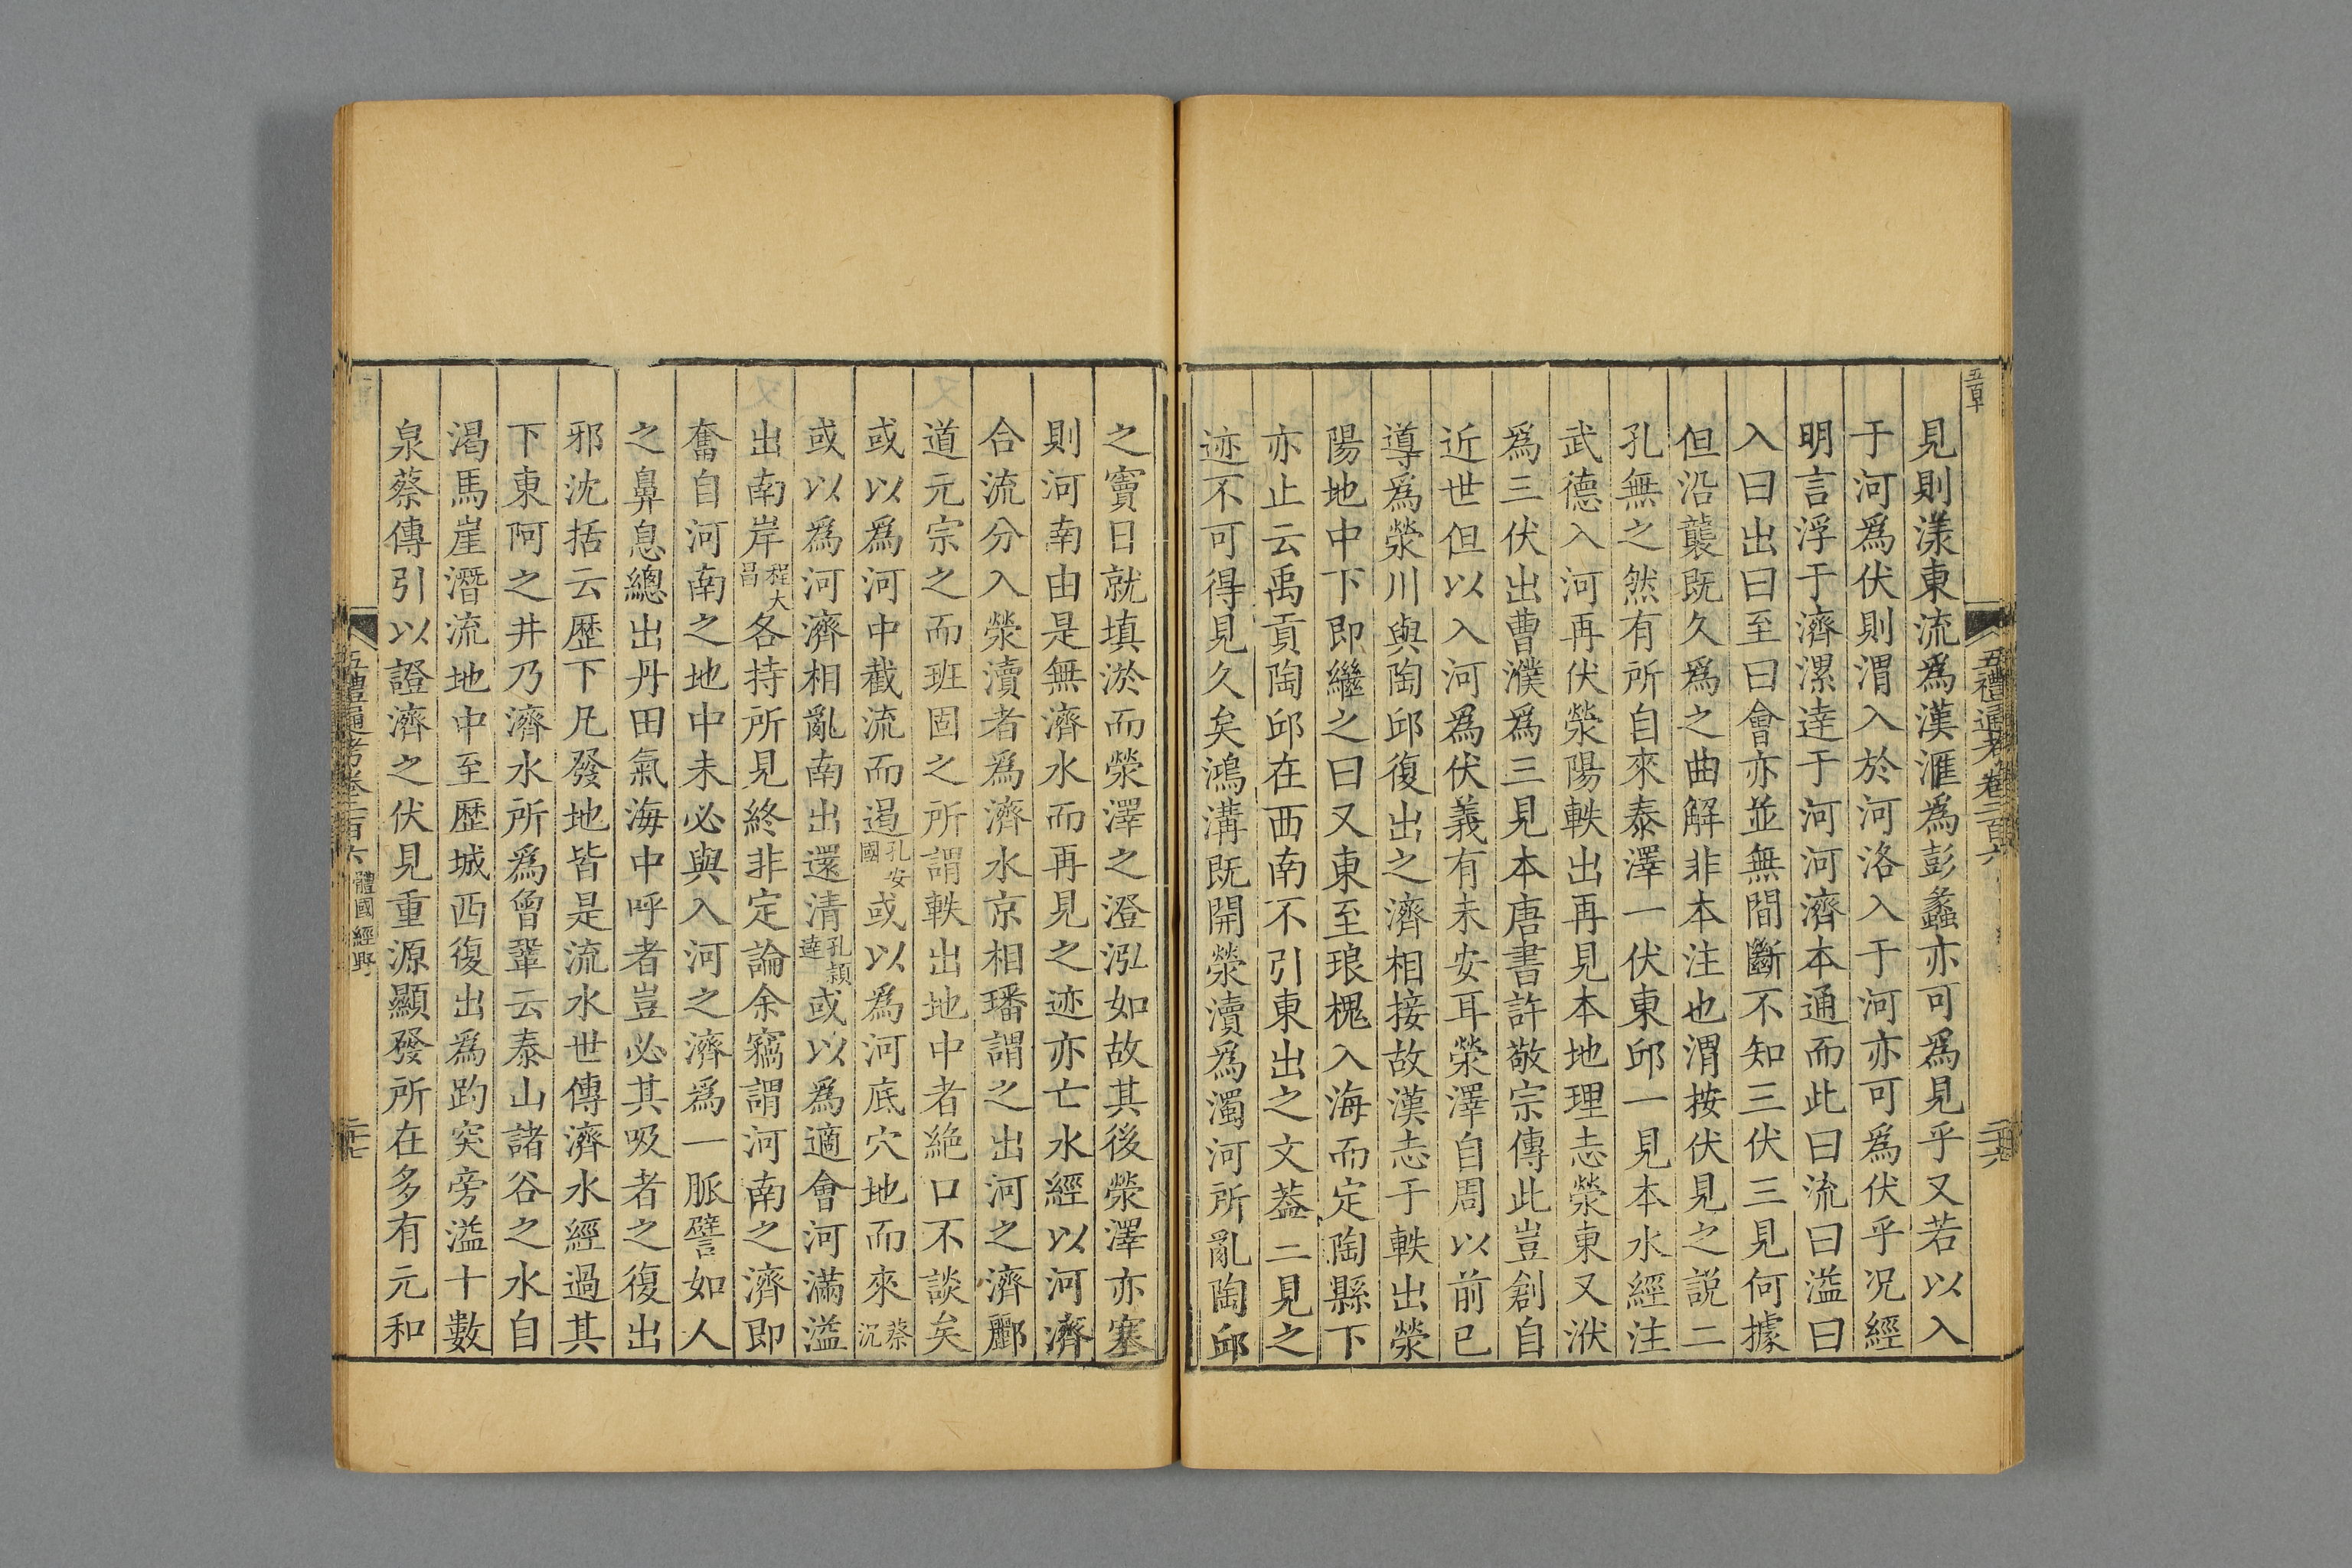 見則漾東流爲漢滙爲彭蠡亦可爲見乎又若以入
于河爲伏則渭入於河洛入于河亦可爲伏乎况經
明言浮于濟漯逹于河河濟本通而此曰流曰溢曰
入曰出曰至曰會亦並無間斷不知三伏三見何據
但沿襲既久爲之曲解非本注也渭按伏見之説二
孔無之然有所自來泰澤一伏東邱一見本水經注
武德入河再伏滎陽軼出再見本地理志滎東又洑
爲三伏出曹濮爲三見本唐書許敬宗傳此豈創自
近世但以入河爲伏義有未安耳滎澤自周以前已
導爲滎川與陶邱復出之濟相接故漢志于軼出滎
陽地中下即繼之曰又東至琅槐入海而定陶縣下
亦止云禹貢陶邱在西南不引東出之文葢二見之
迹不可得見久矣鴻溝既開滎瀆爲濁河所亂陶邱
五禮通考卷二百六
之竇日就填淤而滎澤之澄泓如故其後滎澤亦塞
則河南由是無濟水而再見之迹亦亡水經以河濟
合流分入滎瀆者爲濟水京相璠謂之出河之濟酈
道元宗之而班固之所謂軼出地中者絶口不談矣
或以爲河中截流而過孔安國或以爲河底穴地而來蔡沉
或以爲河濟相亂南出還清孔穎達或以爲適會河滿溢
出南岸程大昌各持所見終非定論余竊謂河南之濟即
奮自河南之地中未必與入河之濟爲一脈譬如人
之鼻息總出丹田氣海中呼者豈必其吸者之復出
邪沈括云歴下凡發地皆是流水世傳濟水經過其
下東阿之井乃濟水所爲曾鞏云泰山諸谷之水自
渴馬崖潛流地中至歴城西復出爲趵突旁溢十數
泉蔡傳引以證濟之伏見重源顯發所在多有元和
五禮通考卷二百六 體國經野